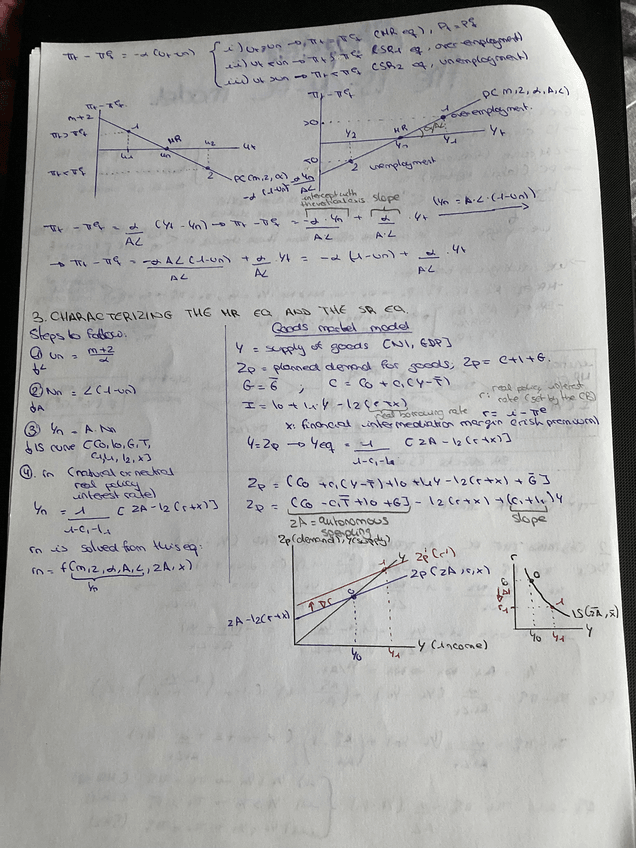 πt - πet = -α (ut - un) { i) ut = un → πt = πet (MR eq), Pt = Pet
ii) ut < un → πt > πet (SR1 eq, overemployment)
iii) ut > un → πt < πet (SR2 eq, unemployment)
πt - πet
m+z
πt > πet
1
MR
u1 un u2 ut
πt < πet
2
PC(m, z, α)
πt - πet
PC(m, z, α, A, L)
>0
1
overemployment
MR
α/AL
y2 yn y1 yt
<0
2
unemployment
-α (1-un)
-α yn
AL
intercept with the vertical axis
slope
πt - πet = α/AL (yt - yn) → πt - πet = -α·yn/AL + α/A·L · yt (yn = A·L·(1-un))
→ πt - πet = -α AL (1-un)/AL + α/AL · yt = -α (1-un) + α/AL · yt
3. CHARACTERIZING THE MR EQ AND THE SR EQ.
Steps to follow:
① un = m+z/α
↓L
② Nn = L (1-un)
↓A
③ yn = A·Nn
↓ IS curve (C0, I0, G, T, c1, i1, i2, x)
④ rn (natural or neutral real policy interest rate)
yn = 1/1-c1-i1 [ZA - i2 (r+x)]
rn is solved from this eq:
rn = f(m, z, α, A, L, ZA, x)
yn
Goods market model
y = supply of goods (NI, GDP)
Zp = planned demand for goods; Zp = C+I+G.
G = G̅ ; C = C0 + c1 (y-T̅)
I = I0 + i1·y - i2 (r+x)
r: real policy interest rate (set by the CB)
real borrowing rate r = i - πe
x: financial intermediation margin (risk premium)
y = Zp → yeq = 1/1-c1-i1 [ZA - i2 (r+x)]
Zp = (C0 + c1 (y-T̅) + I0 + i1y - i2 (r+x) + G̅)
Zp = (C0 - c1T̅ + I0 + G) - i2 (r+x) + (c1+i1) y
ZA = autonomous spending
slope
Zp (demand), y (supply)
y
Zp' (r')
Zp (ZA, r, x)
1
0
↑ ∇r
ZA - i2 (r+x)
y0 y1
y (income)
r
r0
r1
0
1
IS (Z̅A, x̅)
y0 y1
y